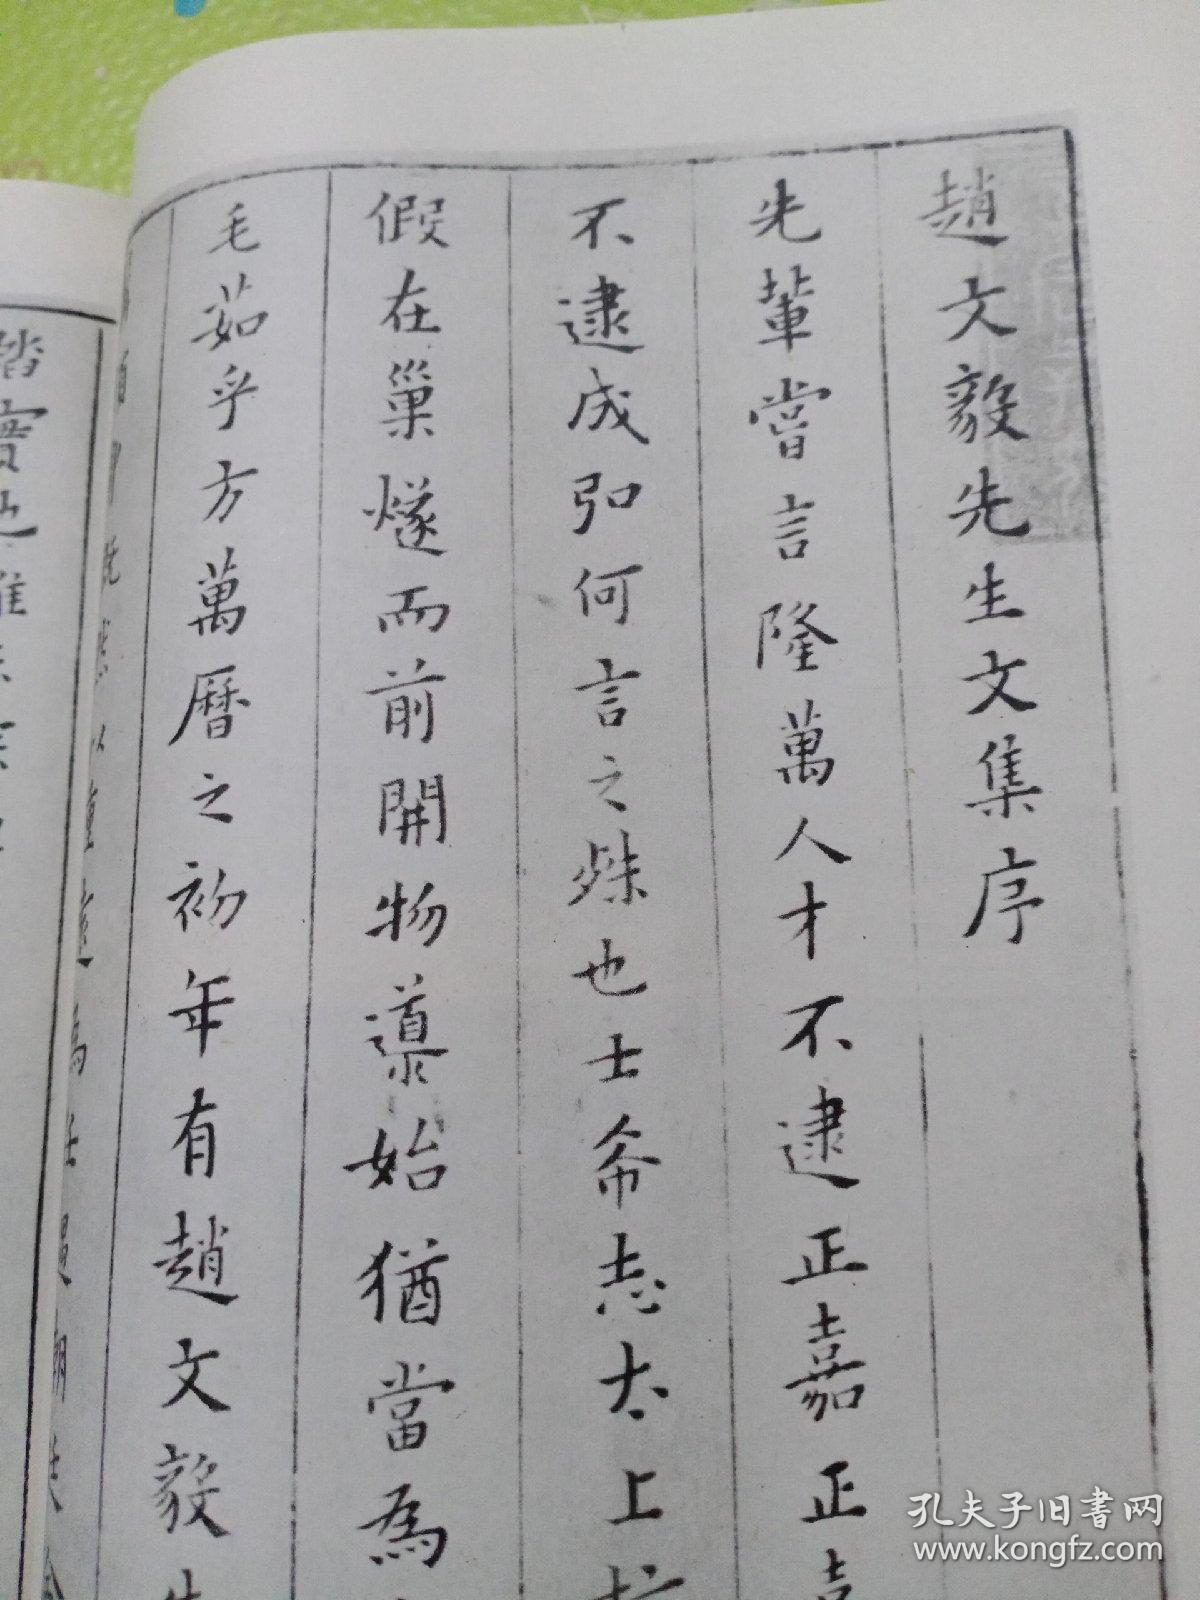 趙文毅先生文集序
先輩嘗言隆萬人才不逮正嘉正嘉
不逮成弘何言之殊也士希志太上
假在巢燧而前開物導始猶當為
毛茹乎方萬曆之初年有趙文毅先
以重
為
踏實也
孔夫子旧書网
www.kongfz.com